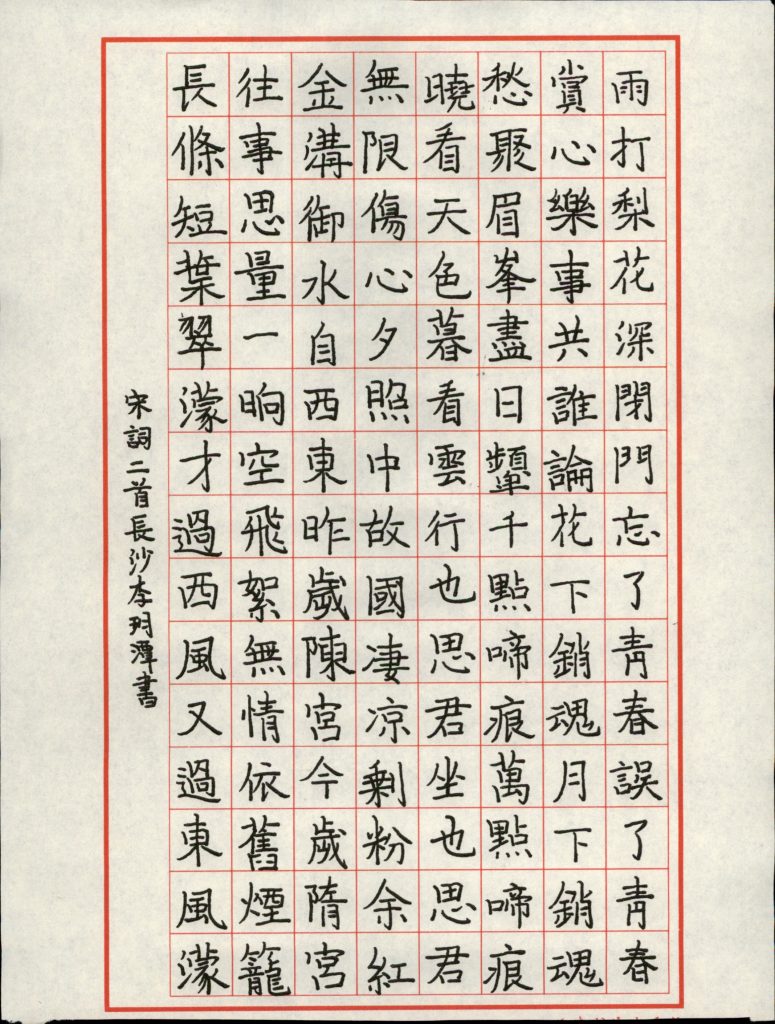 雨打梨花深閉門忘了青春誤了青春
賞心樂事共誰論花下銷魂月下銷魂
愁聚眉峯盡日顰千點啼痕萬點啼痕
曉看天色暮看雲行也思君坐也思君
無限傷心夕照中故國凄凉剩粉余紅
金溝御水自西東昨歲陳宮今歲隋宮
往事思量一晌空飛絮無情依舊煙籠
長條短葉翠濛才過西風又過東風濛
宋詞二首長沙李玥潭書